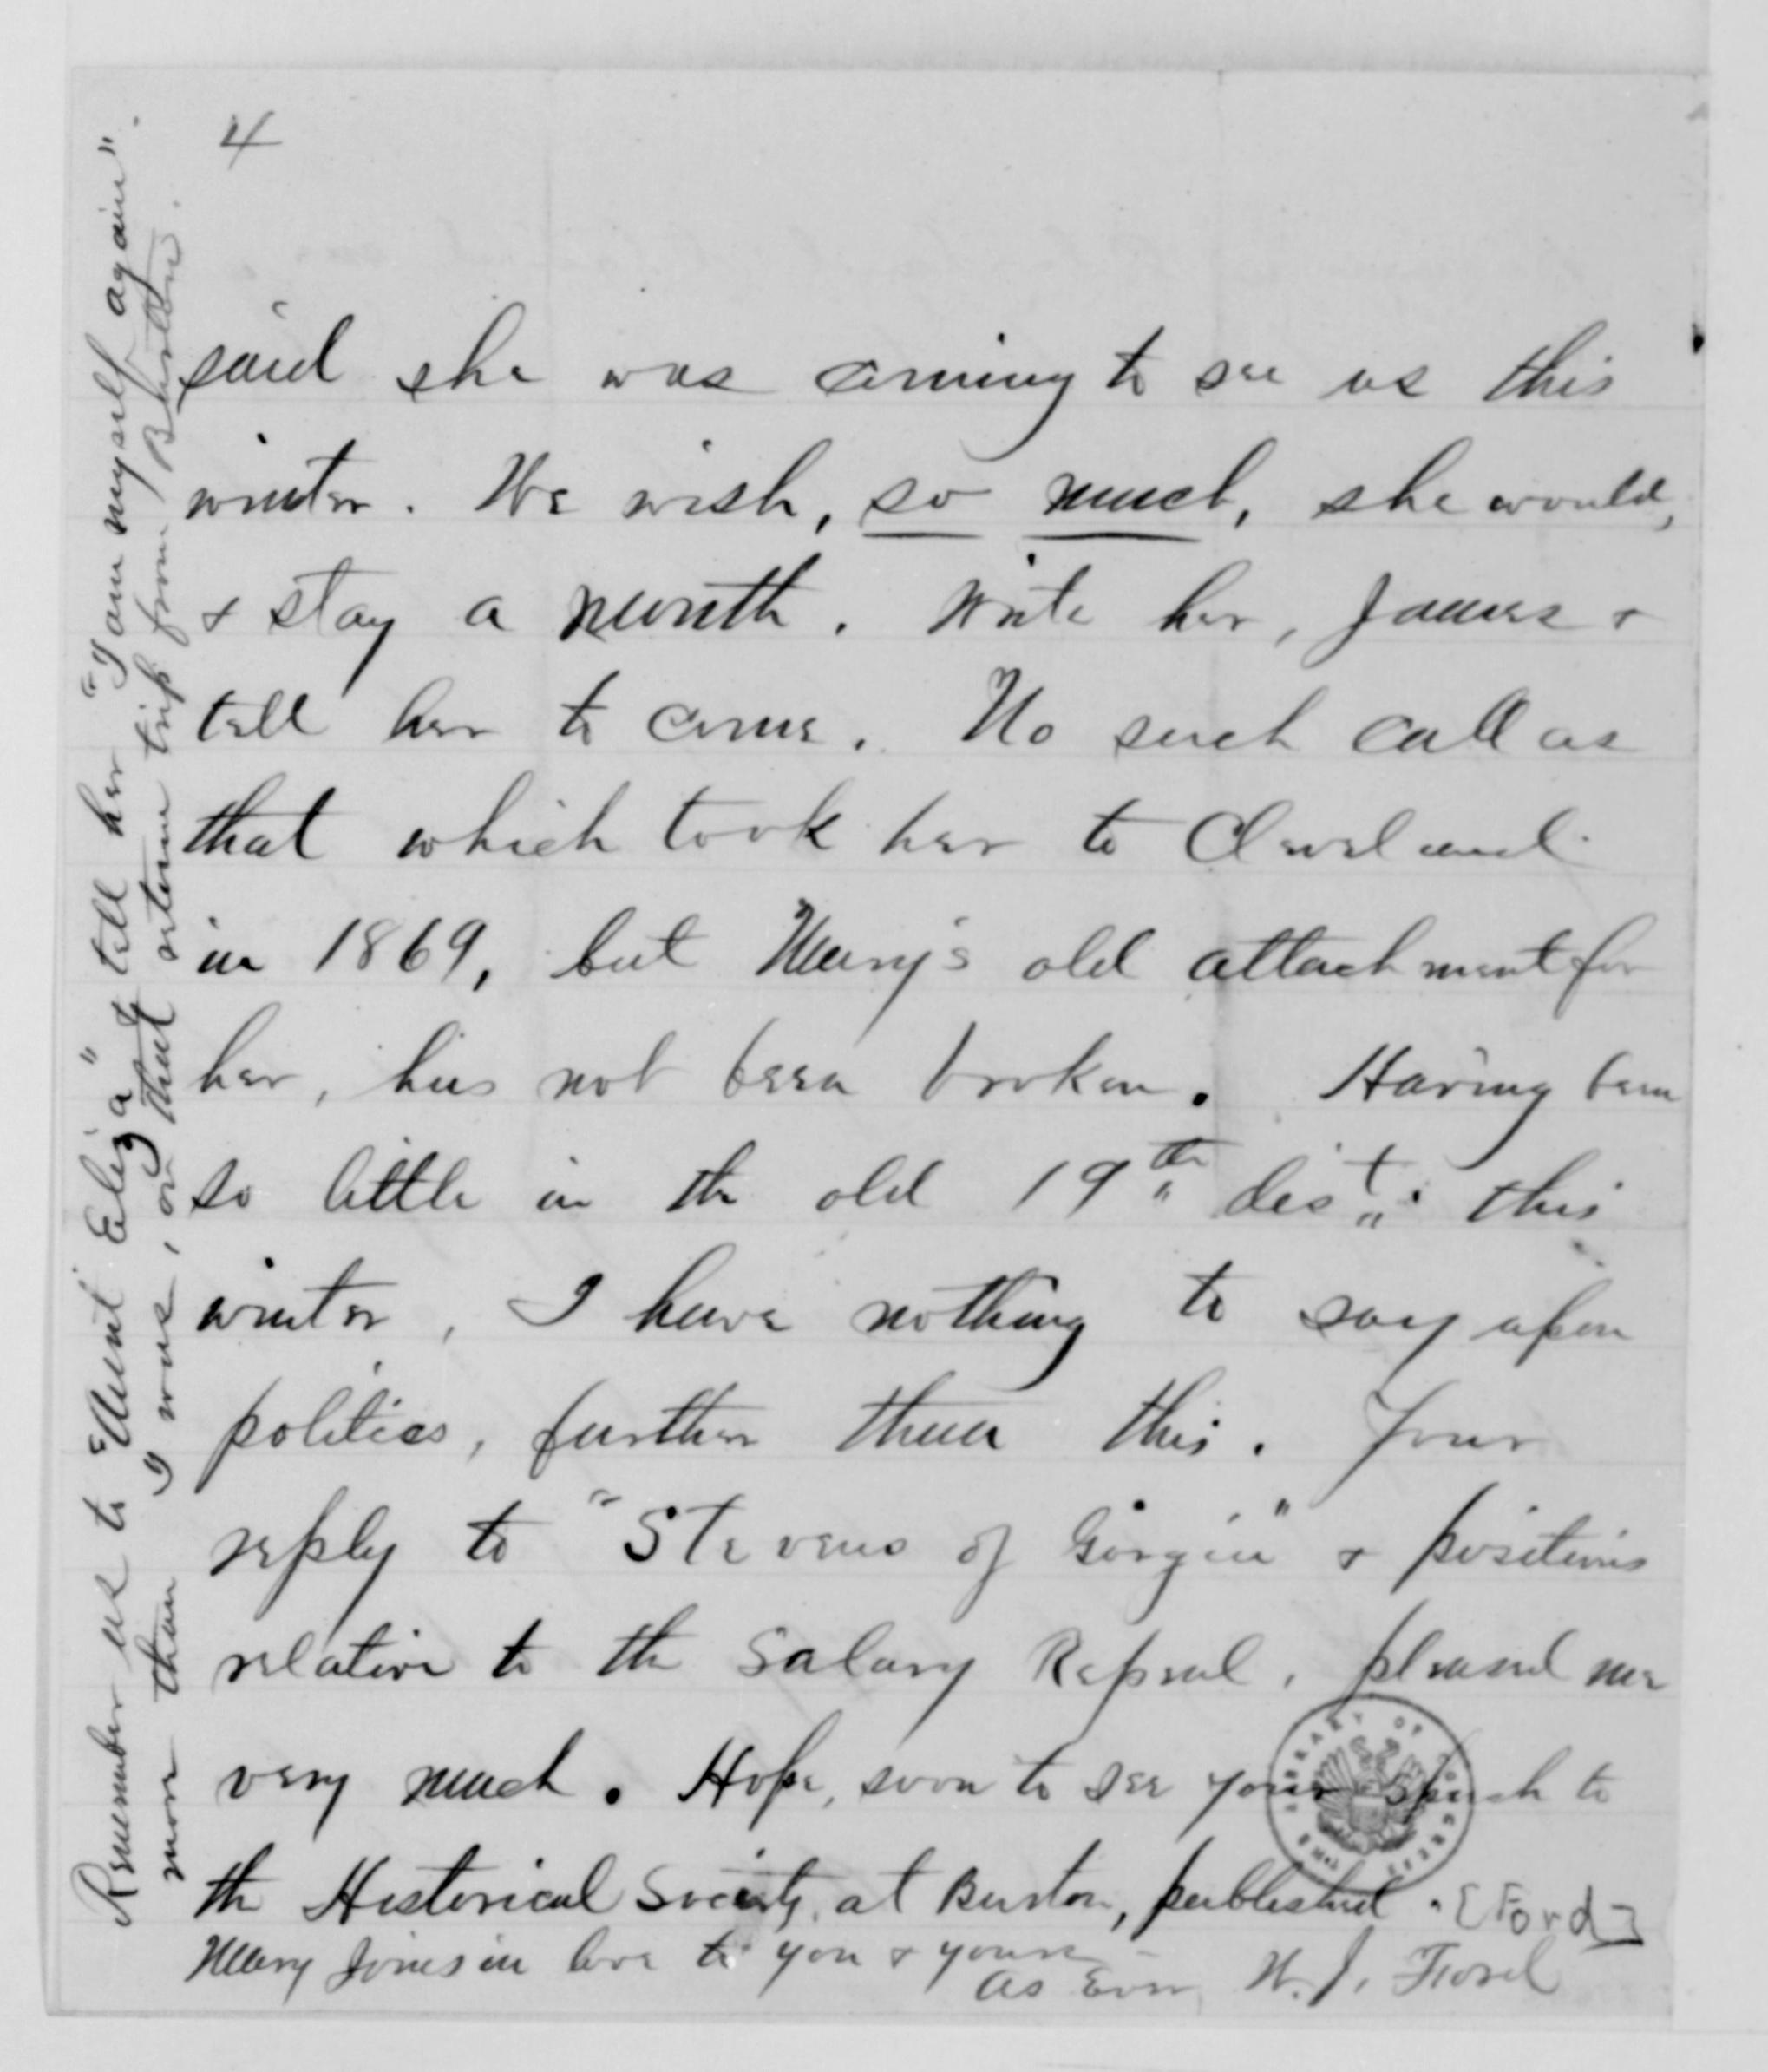 4
said she was coming to see us this
winter. We wish, so much, she would,
+ stay a month. Write her, James +
tell her to come. No such call as
that which took her to Cleveland
in 1869, but Mary's old attachment for
her, has not been broken. Having been
so little in the old 19th dist. this
winter, I have nothing to say upon
politics, further than this. Your
reply to "Stevens of Gorgia" + positions
relative to the Salary Repeal, pleased me
very much. Hope, soon to see your speech to
the Historical Society, at Burton, published. [Ford]
Mary joins in love to you + yours
As Ever, W. J. Ford
Remember us to "Aunt Eliza" tell her "I am myself again".
more than I was, on that return trip from Burton.
LIBRARY OF CONGRESS